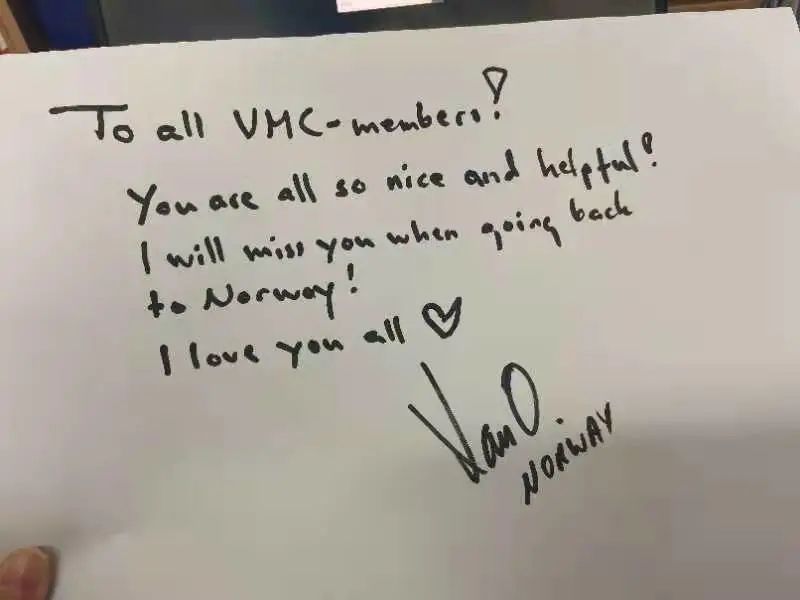 To all VMC-members!
You are all so nice and helpful!
I will miss you when going back
to Norway!
I love you all ♡
NORWAY